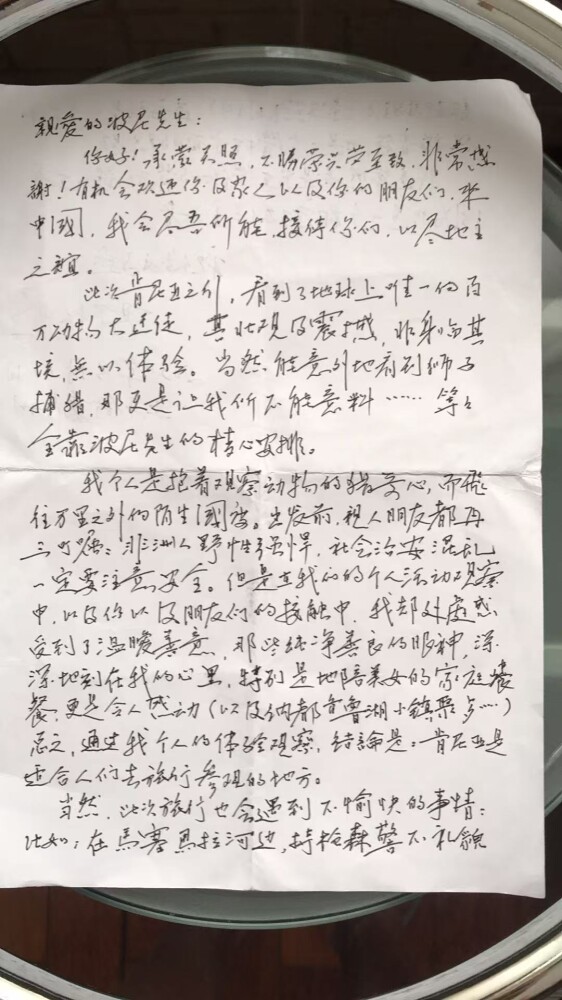 親愛的波尼先生：
你好！承蒙关照，不勝荣兴荣至致，非常感
謝！有机会欢迎你及家人以及你的朋友们，来
中國，我会尽吾所能，接待你们，以尽地主
之誼。
此次肯尼亚之行，看到了地球上唯一的百
万动物大迁徒，其壮观及震撼，非身临其
境，無以体验。当然能意外地看到狮子
捕猎，那更是让我所不能意料……等等
全靠波尼先生的精心安排。
我个人是抱着观察动物的猎奇心，而飛
往万里之外的陌生國度。出发前，親人朋友都再
三叮嘱：非洲人野性强悍，社会治安混乱
一定要注意安全。但是在我们的个人活动观察
中，以及你以及朋友们的接触中，我却处處感
受到了温暖善意，那些纯净善良的眼神，深
深地刻在我的心里，特别是地陪美女的家庭
餐，更是令人感动（以及纳都魯湖小鎮聚…）
总之，通过我个人的体验观察，结論是：肯尼亚是
适合人们去旅行参观的地方。
当然，此次旅行也会遇到不愉快的事情：
比如：在馬赛馬拉河边，持枪森警不礼貌